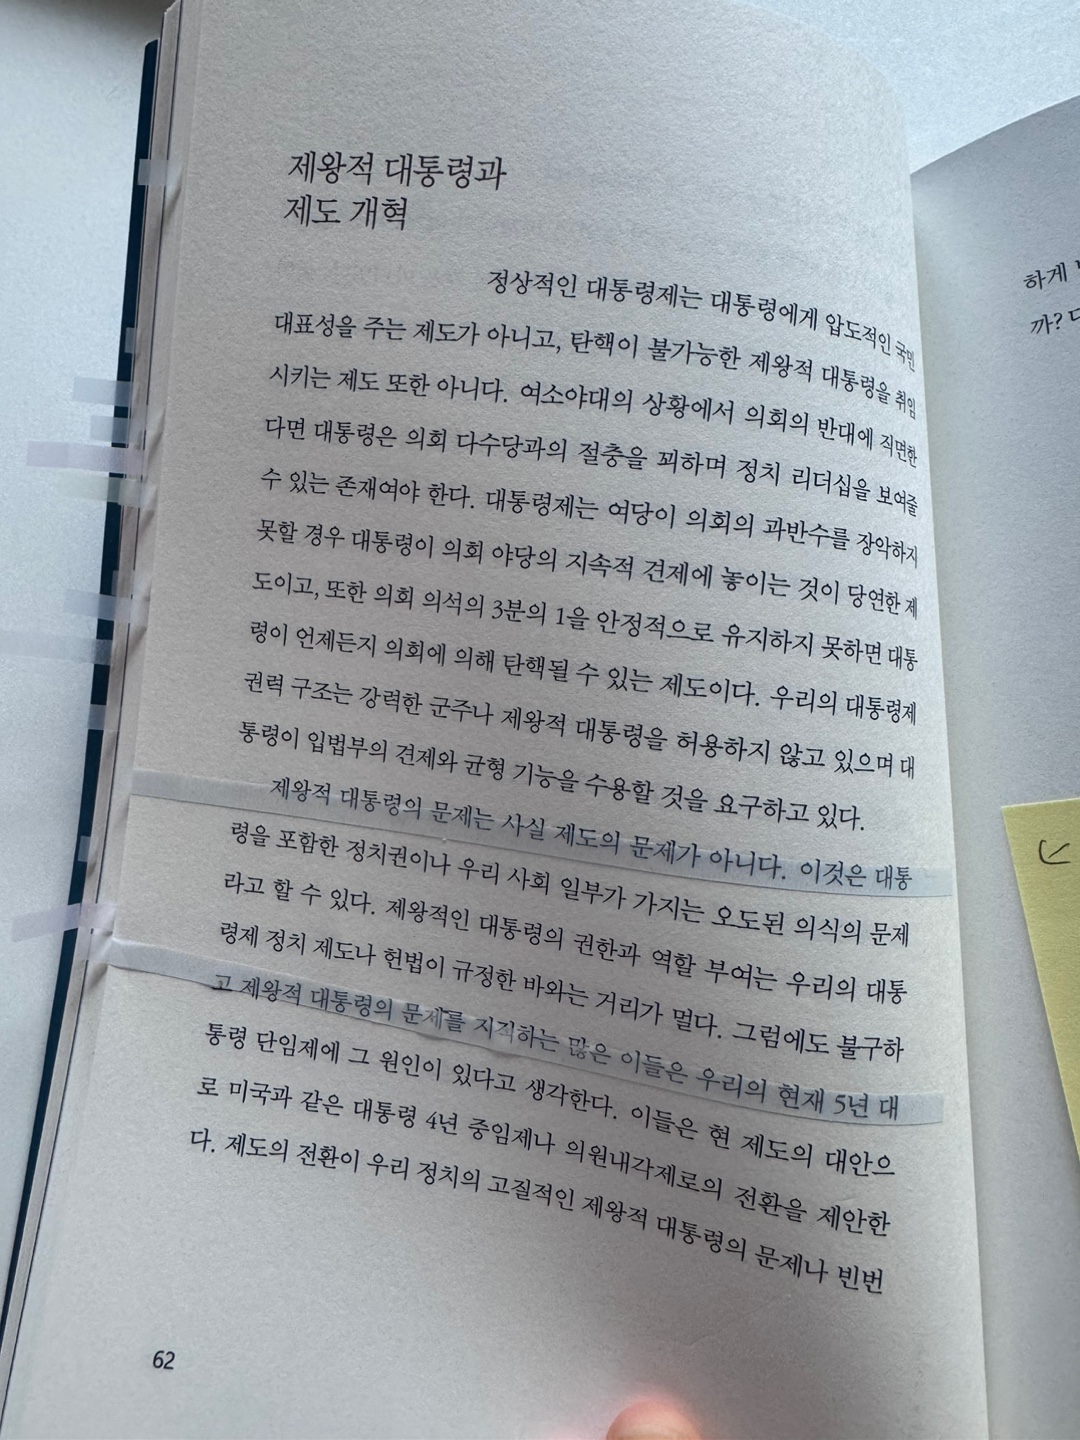 제왕적 대통령과
제도 개혁
정상적인 대통령제는 대통령에게 압도적인 국민
대표성을 주는 제도가 아니고, 탄핵이 불가능한 제왕적 대통령을 취임
시키는 제도 또한 아니다. 여소야대의 상황에서 의회의 반대에 직면한
다면 대통령은 의회 다수당과의 절충을 꾀하며 정치 리더십을 보여줄
수 있는 존재여야 한다. 대통령제는 여당이 의회의 과반수를 장악하지
못할 경우 대통령이 의회 야당의 지속적 견제에 놓이는 것이 당연한 제
도이고, 또한 의회 의석의 3분의 1을 안정적으로 유지하지 못하면 대통
령이 언제든지 의회에 의해 탄핵될 수 있는 제도이다. 우리의 대통령제
권력 구조는 강력한 군주나 제왕적 대통령을 허용하지 않고 있으며 대
통령이 입법부의 견제와 균형 기능을 수용할 것을 요구하고 있다.
제왕적 대통령의 문제는 사실 제도의 문제가 아니다. 이것은 대통
령을 포함한 정치권이나 우리 사회 일부가 가지는 오도된 의식의 문제
라고 할 수 있다. 제왕적인 대통령의 권한과 역할 부여는 우리의 대통
령제 정치 제도나 헌법이 규정한 바와는 거리가 멀다. 그럼에도 불구하
고 제왕적 대통령의 문제를 지적하는 많은 이들은 우리의 현재 5년 대
통령 단임제에 그 원인이 있다고 생각한다. 이들은 현 제도의 대안으
로 미국과 같은 대통령 4년 중임제나 의원내각제로의 전환을 제안한
다. 제도의 전환이 우리 정치의 고질적인 제왕적 대통령의 문제나 빈번
62
하게
까?